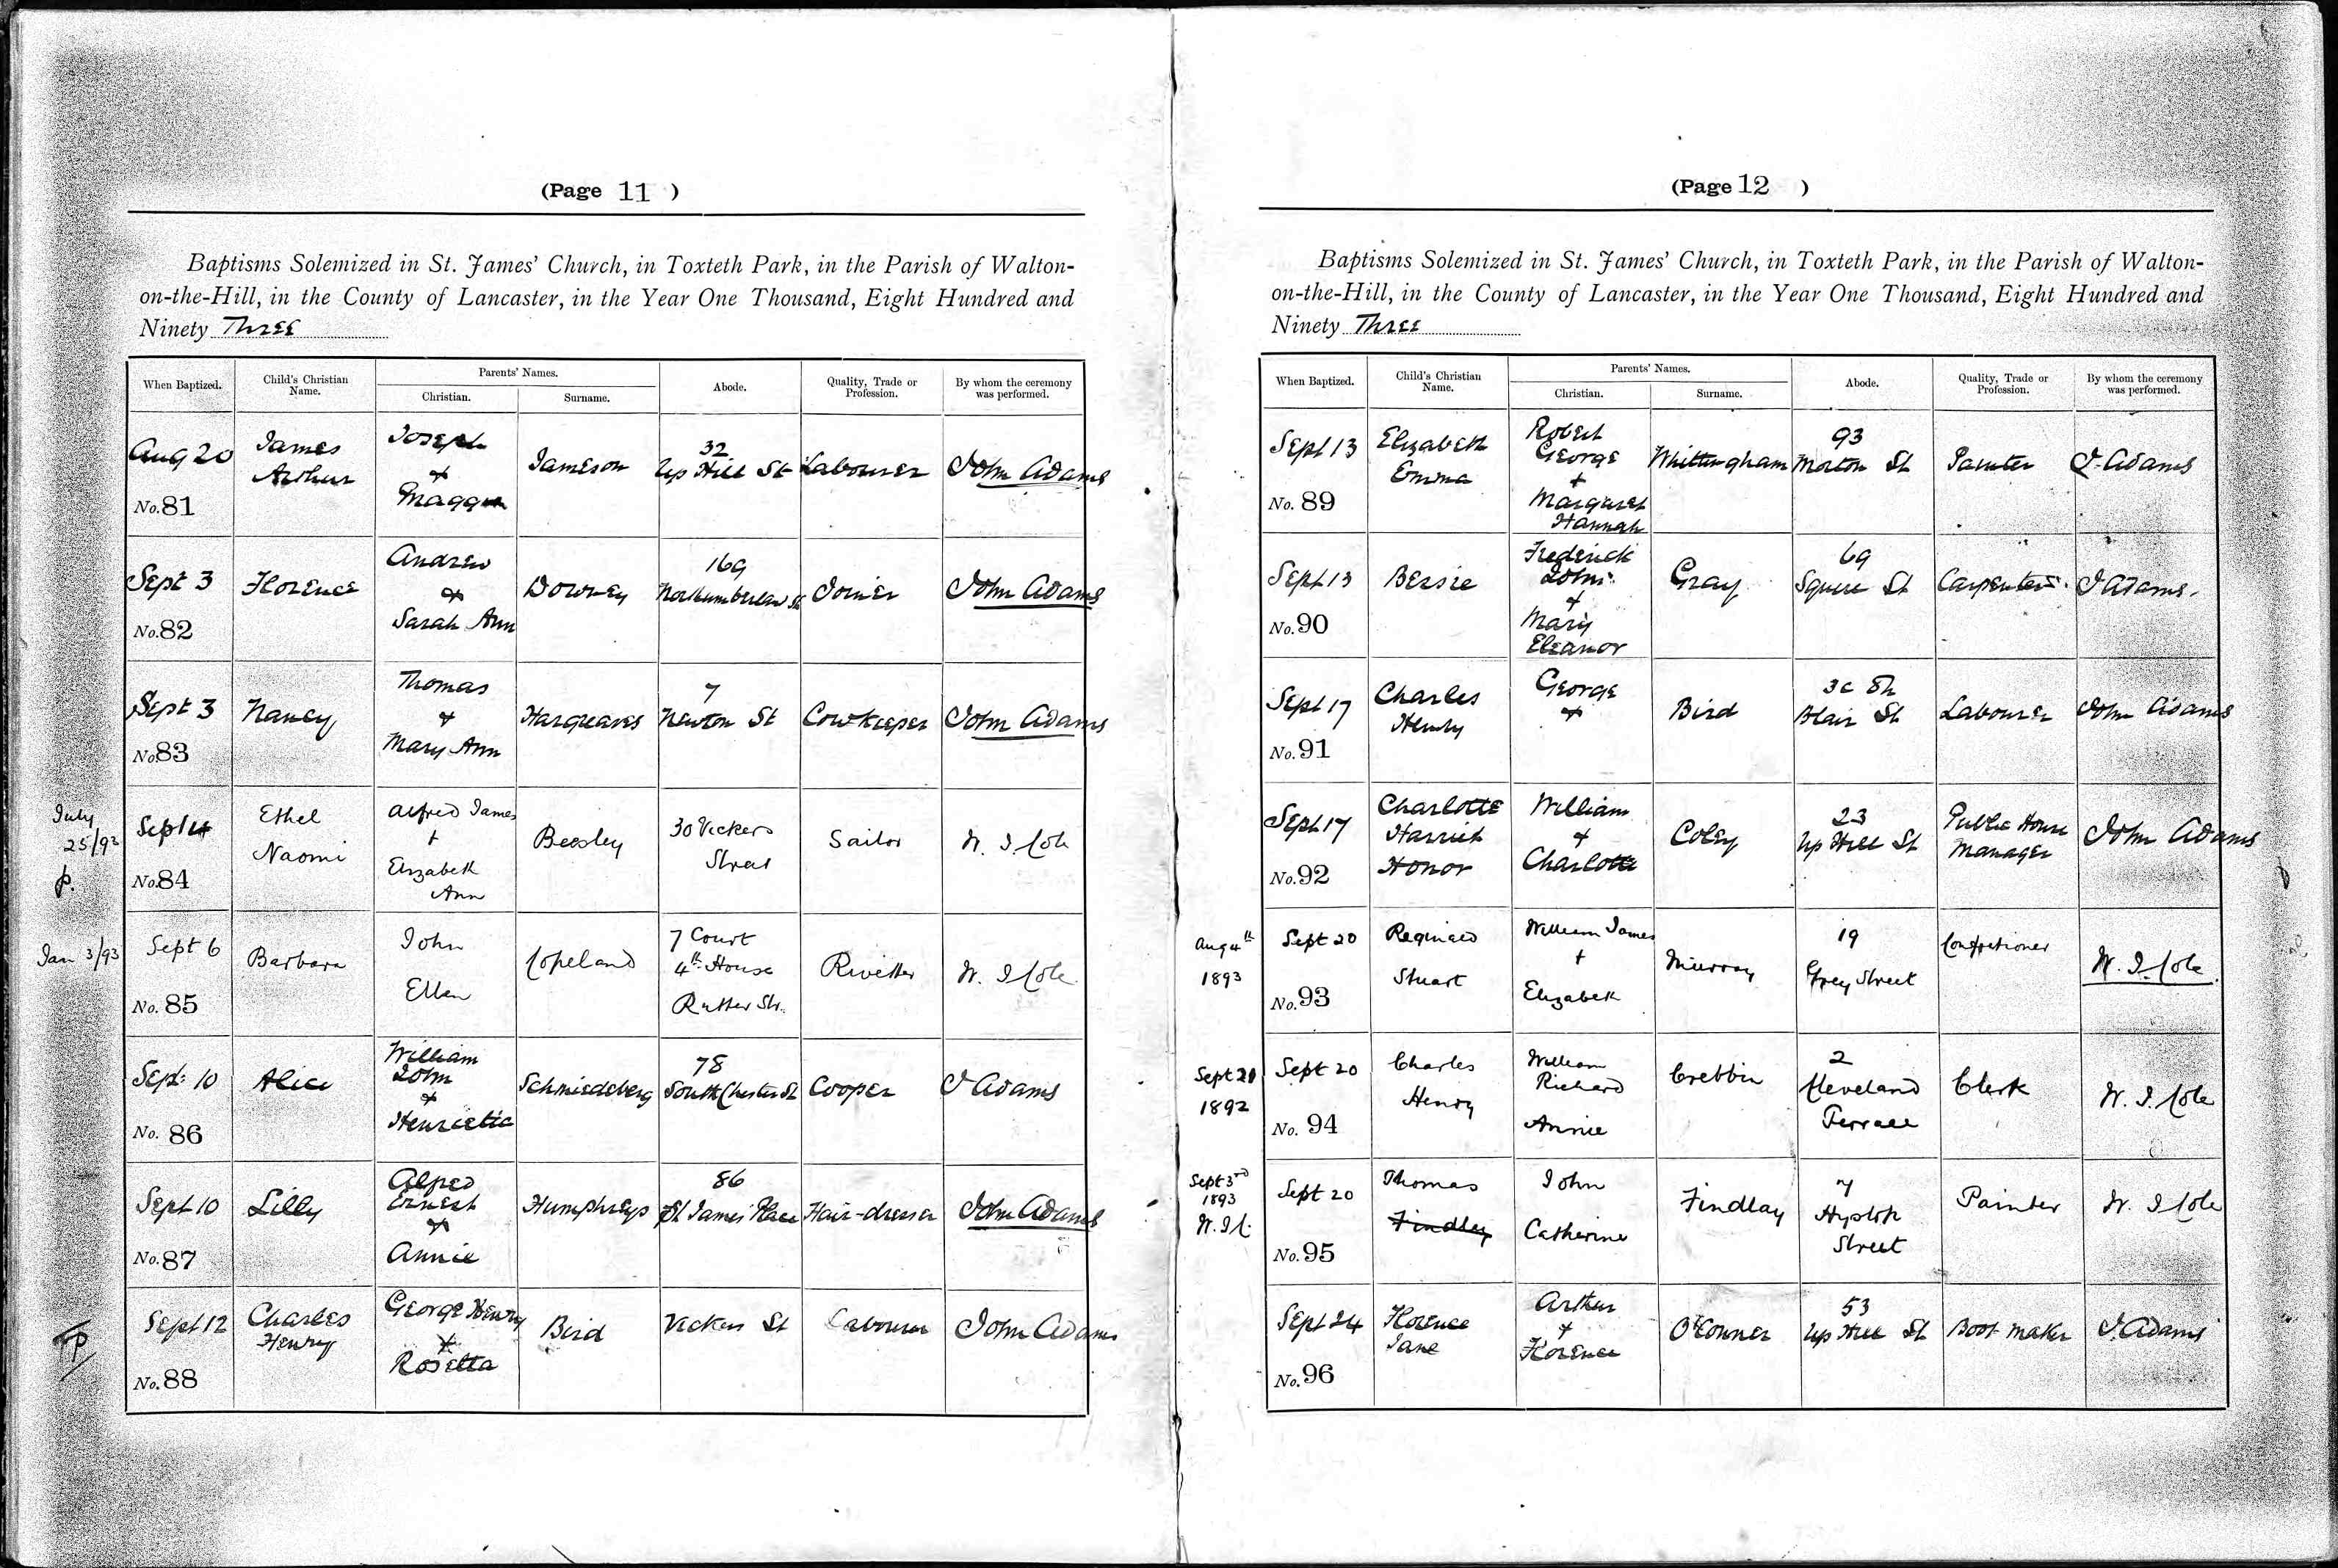 (Page 11 )
Baptisms Solemized in St. James' Church, in Toxteth Park, in the Parish of Walton-
on-the-Hill, in the County of Lancaster, in the Year One Thousand, Eight Hundred and
Ninety Three
When Baptized. Child's Christian Name. Parents' Names. Christian. Surname. Abode. Quality, Trade or Profession. By whom the ceremony was performed.
Aug 20 No. 81 James Arthur Joseph + Maggie Jameson 32 Up Hill St Labourer John Adams
Sept 3 No. 82 Florence Andrew + Sarah Ann Downey 169 Northumberland St Joiner John Adams
Sept 3 No. 83 Nancy Thomas + Mary Ann Hargreaves 7 Newton St Cowkeeper John Adams
July 25/92 p. Sept 4 No. 84 Ethel Naomi Alfred James + Elizabeth Ann Beesley 30 Vickers Street Sailor W. J. Cole
Jan 3/93 Sept 6 No. 85 Barbara John Ellen Copeland 7 Court 4th House Rutter Str. Rivetter W. J. Cole
Sept 10 No. 86 Alice William John + Henrietta Schmiedeberg 78 South Chester St Cooper J Adams
Sept 10 No. 87 Lilly Alfred Ernest + Annie Humphreys 86 St James Place Hair-dresser John Adams
p Sept 12 No. 88 Charles Henry George Henry + Rosetta Bird Vickers St Labourer John Adams
(Page 12 )
Baptisms Solemized in St. James' Church, in Toxteth Park, in the Parish of Walton-
on-the-Hill, in the County of Lancaster, in the Year One Thousand, Eight Hundred and
Ninety Three
When Baptized. Child's Christian Name. Parents' Names. Christian. Surname. Abode. Quality, Trade or Profession. By whom the ceremony was performed.
Sept 13 No. 89 Elizabeth Emma Robert George + Margaret Hannah Whittingham 93 Morton St Painter J. Adams
Sept 13 No. 90 Bessie Frederick John + Mary Eleanor Gray 69 Squire St Carpenter J Adams
Sept 17 No. 91 Charles Henry George + Bird 3c 8h Blair St Labourer John Adams
Sept 17 No. 92 Charlotte Harriet Honor William + Charlotte Coley 23 Up Hill St Public House Manager John Adams
Aug 4th 1893 Sept 20 No. 93 Reginald Stuart William James + Elizabeth Murray 19 Grey Street Confectioner W. J. Cole
Sept 20 1892 Sept 20 No. 94 Charles Henry William Richard Annie Crebbin 2 Cleveland Terrace Clerk W. J. Cole
Sept 3rd 1893 W. J. C. Sept 20 No. 95 Thomas Findlay John Catherine Findlay 7 Hyslop Street Painter W. J Cole
Sept 24 No. 96 Florence Jane Arthur + Florence O'Conner 53 Up Hill St Boot maker J. Adams